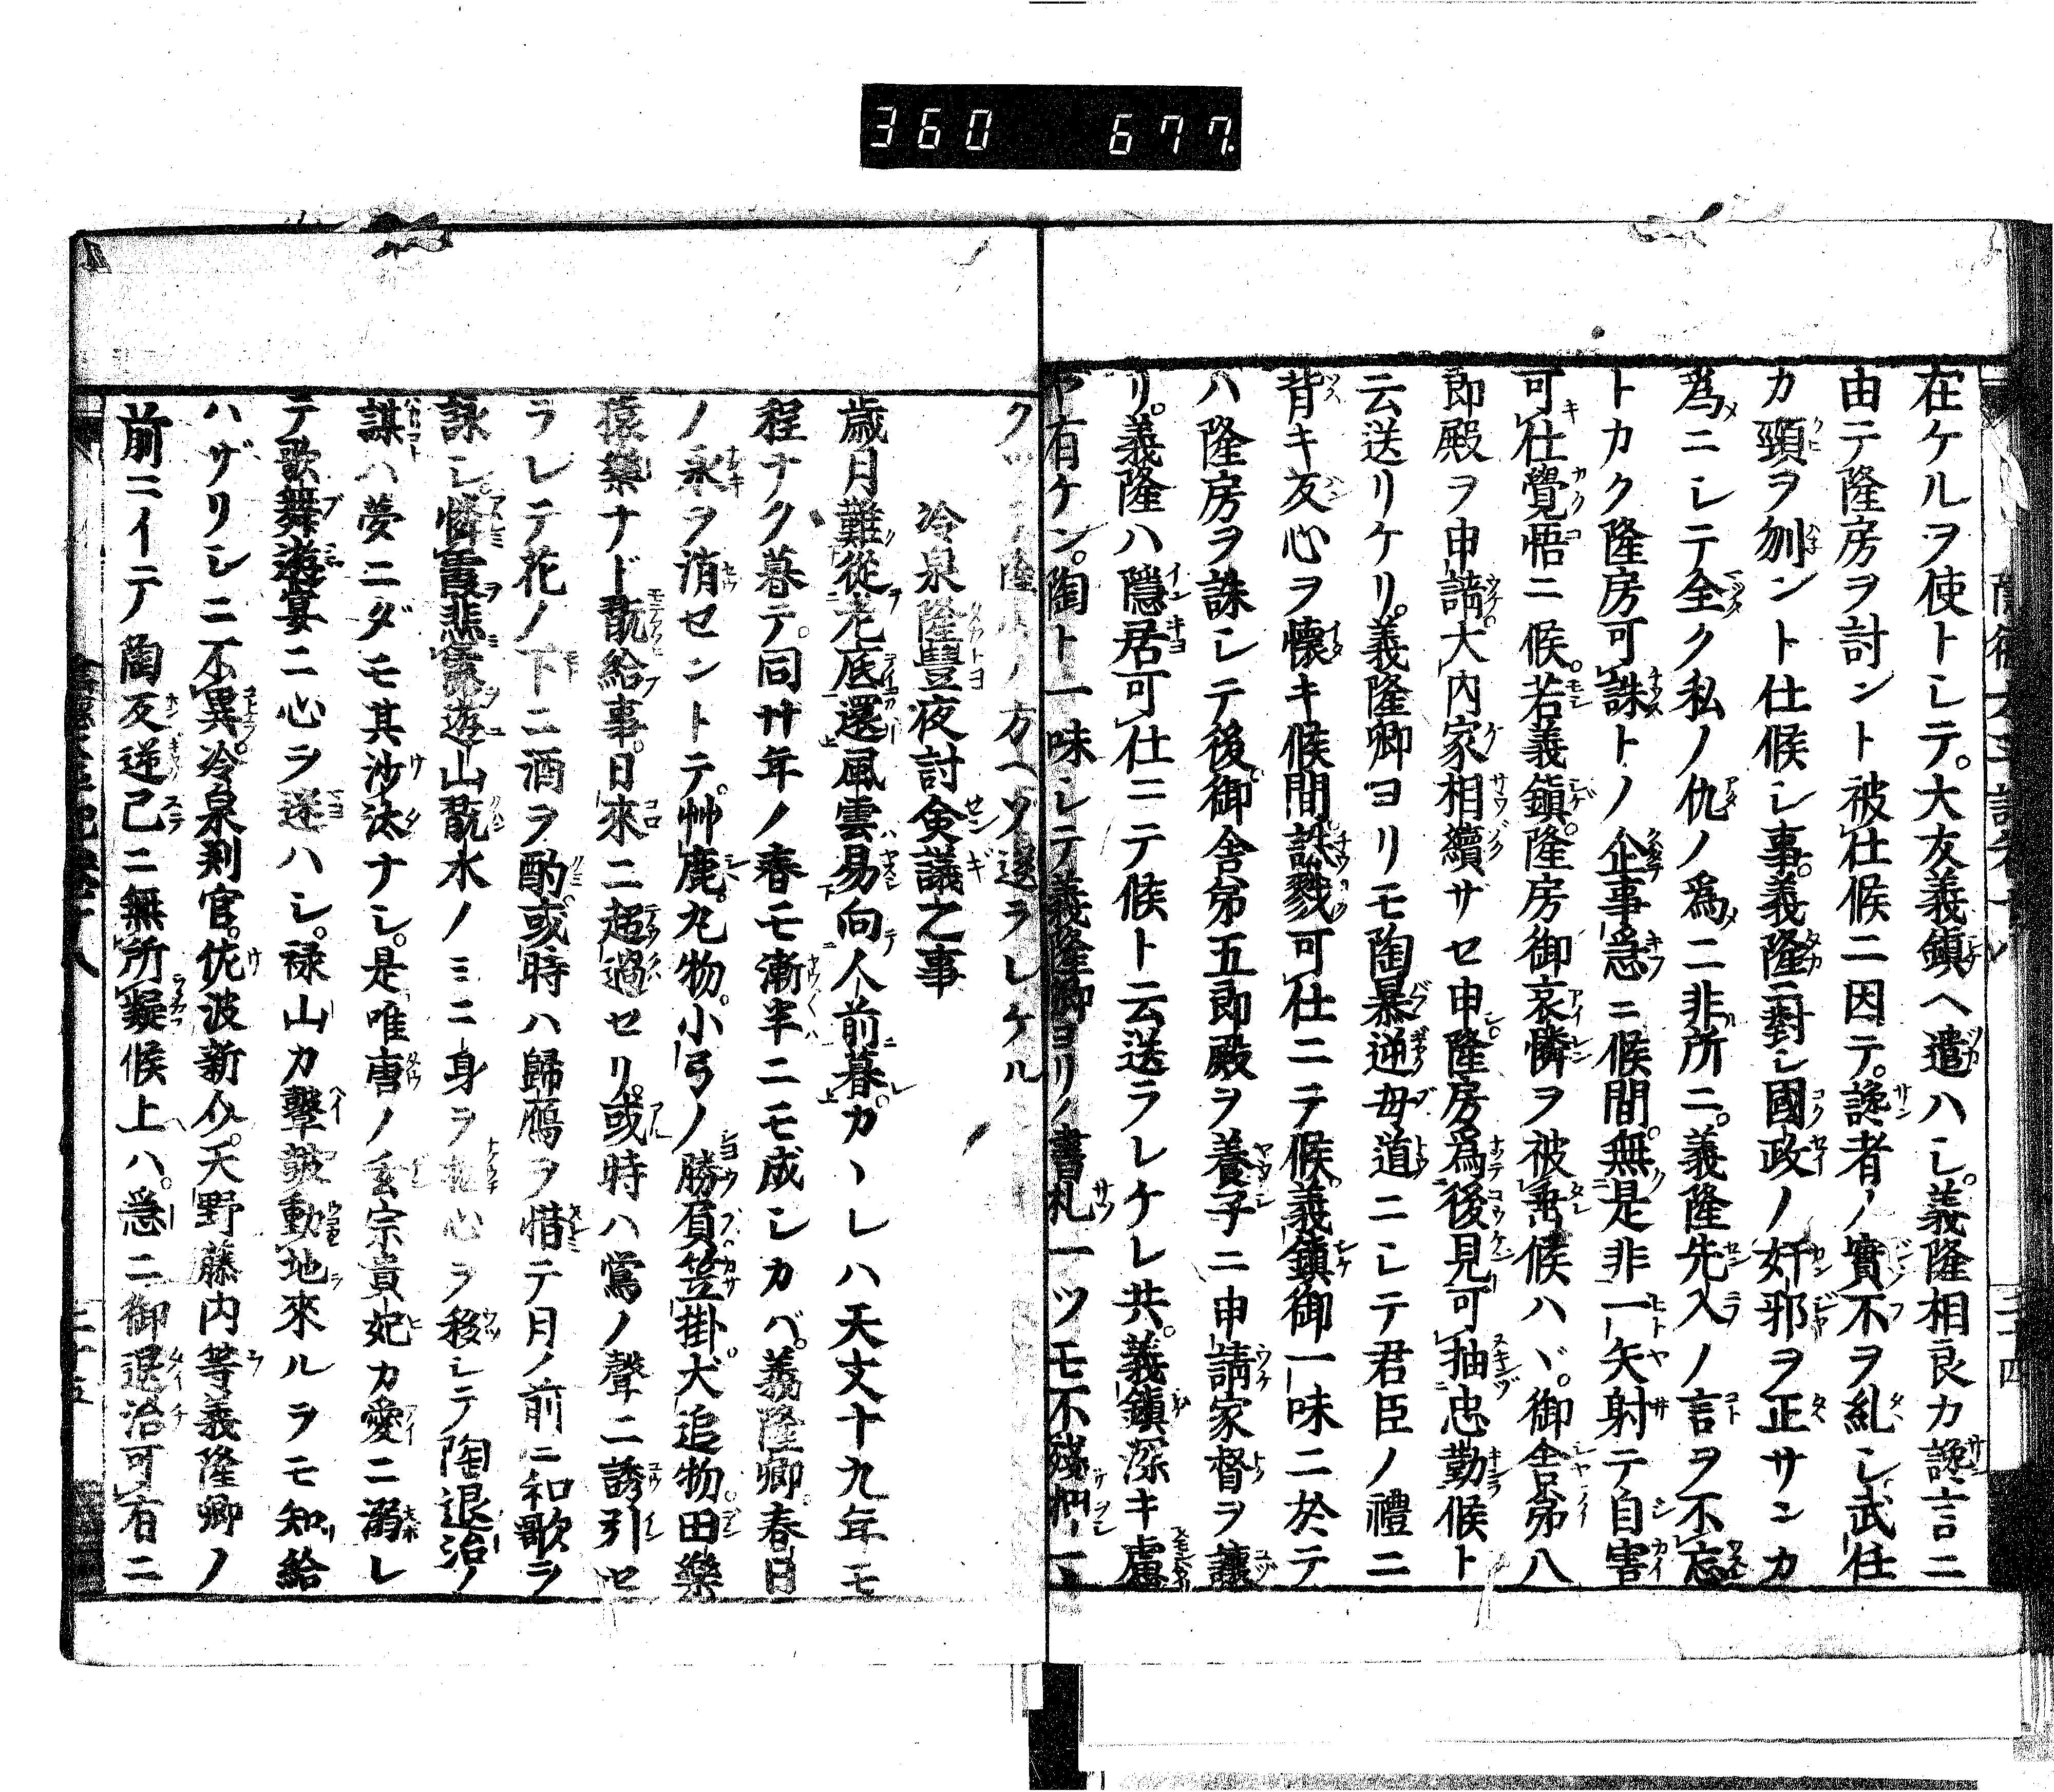 360 677.
在ケルヲ使トシテ。大友義鎮ヘ遣ハシ。義隆相良カ讒言ニ
由テ隆房ヲ討ント被仕候ニ因テ。讒者ノ實不ヲ糺シ武任
カ頸ヲ刎ント仕候シ事。義隆ニ對シ國政ノ奸邪ヲ正サンカ
為ニシテ全ク私ノ仇ノ為ニ非所ニ。義隆先入ノ言ヲ不忘
トカク隆房可誅トノ企事急ニ候間。無是非一矢射テ自害
可仕覺悟ニ候。若義鎮。隆房御哀憐ヲ被垂候ハヾ。御舎弟八
郎殿ヲ申請大内家相續サセ申。隆房為後見可抽忠勤候ト
云送リケリ。義隆卿ヨリモ陶暴逆毋道ニシテ君臣ノ禮ニ
背キ反心ヲ懐キ候間誅戮可仕ニテ候。義鎮御一味ニ於テ
ハ隆房ヲ誅シテ後。御舎弟五郎殿ヲ養子ニ申請家督ヲ讓
リ。義隆ハ隠居可仕ニテ候ト云送ラレケレ共。義鎮深キ慮
ヤ有ケン。陶ト一味シテ義隆卿ヨリノ書札一ツモ不殘
隆房ノ方ヘゾ送ラレケル
冷泉隆豊夜討僉議之事
歳月難從老底還風雲易向人前暮カヽレハ天文十九年モ
程ナク暮テ。同廿年ノ春モ漸半ニモ成シカバ。義隆卿。春日
ノ永ヲ消セントテ。艸鹿。丸物。小弓ノ勝負笠掛。犬追物。田樂
猿樂ナド翫給事。日來ニ超過セリ。或時ハ鶯ノ聲ニ誘引セ
ラレテ花ノ下ニ酒ヲ酌。或時ハ歸鴈ヲ惜テ月ノ前ニ和歌ヲ
詠シ。憐霞悲露遊山翫水ノミニ身ヲ 心ヲ移シテ陶退治ノ
謀ハ夢ニダモ其沙汰ナシ。是唯唐ノ玄宗貴妃カ愛ニ溺レ
テ歌舞遊宴ニ心ヲ迷ハシ。禄山カ鼙皷動地來ルヲモ知給
ハザリシニ不異。冷泉判官。佐波新介。天野藤内等義隆卿ノ
前ニイテ陶反逆已ニ無所疑候上ハ。急ニ御退治可有ニ